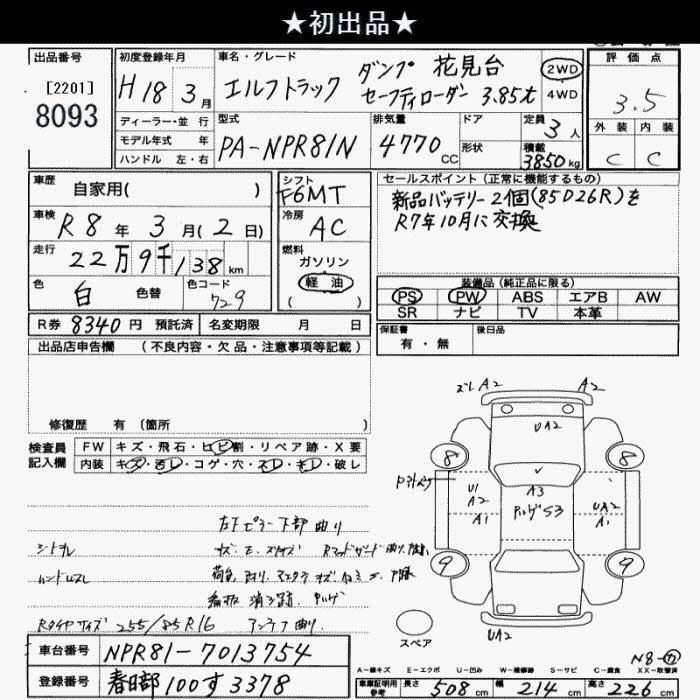 ★初出品★
出品番号
[2201]
8093
初度登録年月
H18年3月
車名・グレード
エルフトラック
ダンプ 花見台
セーフティローダー 3.85t
2WD
4WD
評価点
3.5
外装 内装
C C
ディーラー・並 行
モデル年式 年
ハンドル 左・右
型式
PA-NPR81N
排気量
4770cc
ドア
形状
定員
3人
積載
3850kg
車歴
自家用( )
車検
R8年3月(2日)
走行
22万9千138km
色
白
色替
色コード
729
シフト
F6MT
冷房
AC
燃料
ガソリン
軽油
( )
セールスポイント(正常に機能するもの)
新品バッテリー2個(85D26R)を
R7年10月に交換
装備品(純正品に限る)
PS PW ABS エアB AW
SR ナビ TV 本革
R券 8340円 預託済
名変期限 月 日
保証書
有・無
後日品
出品店申告欄 (不良内容・欠品・注意事項等記載)
修復歴 有 〔箇所 〕
検査員
記入欄
FW キズ・飛石・ヒビ割・リペア跡・X要
内装 キズ・汚レ・コゲ・穴・スレ・キレ・破レ
ズレA2 A2
UA2
8 8
U1
A2
A1
A3
S3
UA2
A1
9 9
UA2
スペア
左下ピラー下部 曲り
シートヨレ
ハンドルスレ
Rタイヤサイズ 255/85R16
アンテナ曲り.
車台番号
NPR81-7013754
登録番号
春日部100す3378
A-線キズ E-エクボ U-凹み W-補修跡 S-サビ C-腐食 XX-取替済
N8-カ
車庫証明用
参考
長さ 508cm 幅 214cm 高さ 226cm